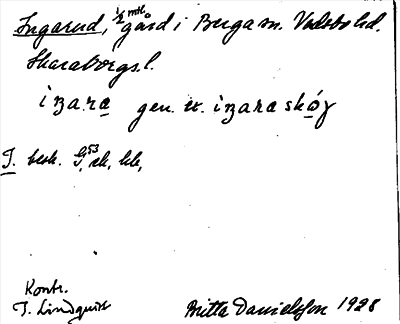 Ingarud, 1/2 mtl. gård i Berga sn. Vadsbo hd.
Skaraborgs l.
iŋa.ra gen. iŋara skóγ
I. besk. G. 53
Kontr.
I. Lindquist Britta Danielsson 1928